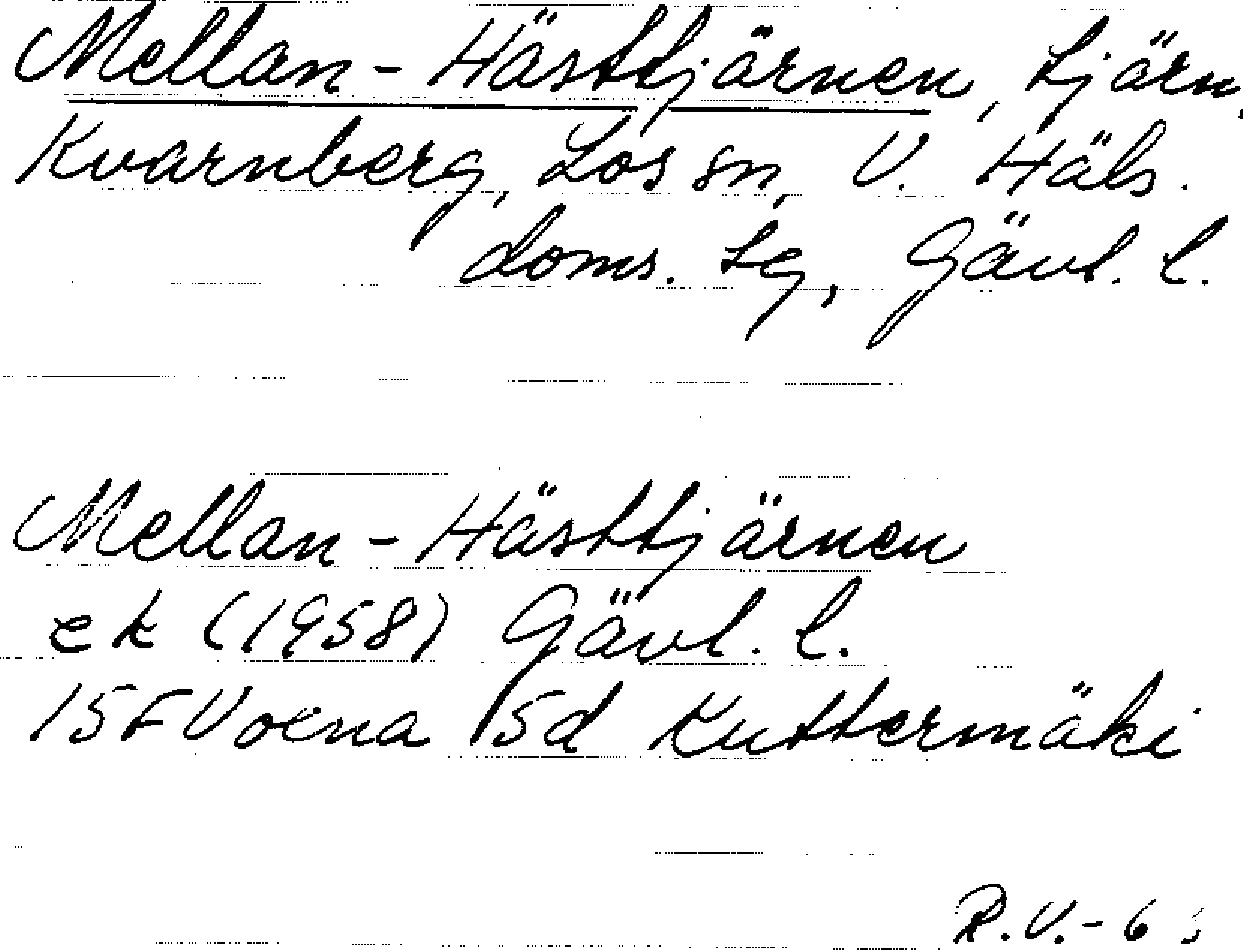 Mellan-Hästtjärnen, tjärn,
Kvarnberg, Los sn, V. Häls.
doms. sg, Gävl. l.
Mellan-Hästtjärnen
ek (1958) Gävl. l.
15F Voxna 5d Kuttermäki
R.V.-6